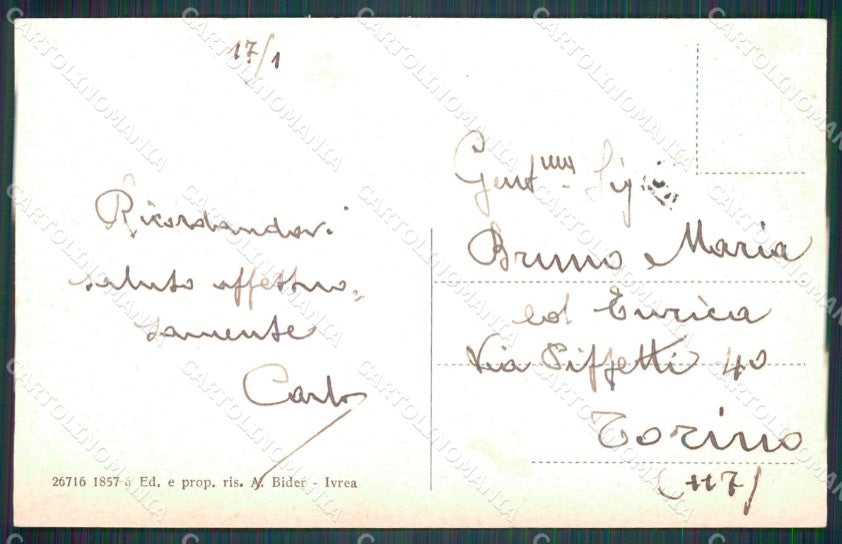 17/1
Ricordandovi
saluto affettuo-
samente
Carlo
26716 1857-6 Ed. e prop. ris. A. Bider - Ivrea
Gent.me Sig.
Bruno Maria
ed Enrica
Via Piffetti 40
Torino
(117)
CARTOLINOMANIA